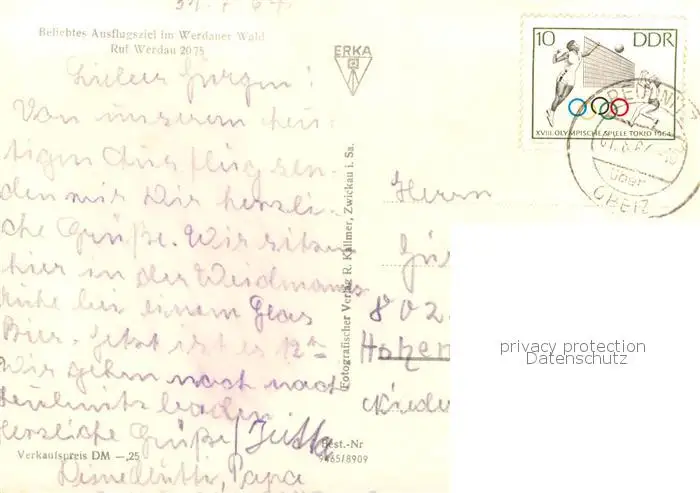 31. 7. 64.
Beliebtes Ausflugsziel im Werdauer Wald
Ruf Werdau 2075
Lieber Jürgen!
Von unserem heu-
tigen Ausflug sen-
den wir Dir herzli-
che Grüße. Wir sitzen
hier in der Weidmanns
ruhe bei einem Glas
Bier. Jetzt ist es 12
Wir gehen noch nach
baden
Herzliche Grüße / Jutta
Papa
Verkaufspreis DM —,25
ERKA
Fotografischer Verlag R. Kallmer, Zwickau i. Sa.
Best.-Nr
9465/8909
10 DDR
XVIII. OLYMPISCHE SPIELE TOKIO 1964
über
GREIZ
Herrn
802
privacy protection
Datenschutz